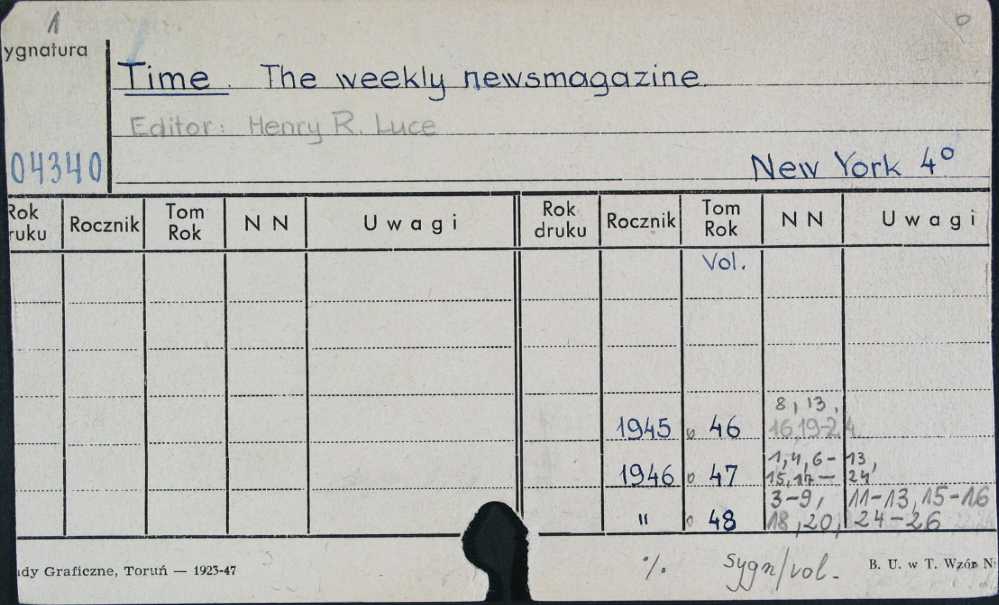 1
ygnatura
Time. The weekly newsmagazine.
Editor: Henry R. Luce
04340
New York 4º
Rok druku Rocznik Tom Rok N N Uwagi Rok druku Rocznik Tom Rok N N Uwagi
Vol.
8, 13,
1945 46 16, 19-24.
1, 4, 6-13,
1946 47 15, 17-24
3-9, 11-13, 15-16
" 48 18, 20, 24-26
ady Graficzne, Toruń — 1923-47
·/. Sygn/vol.
B. U. w T. Wzór N